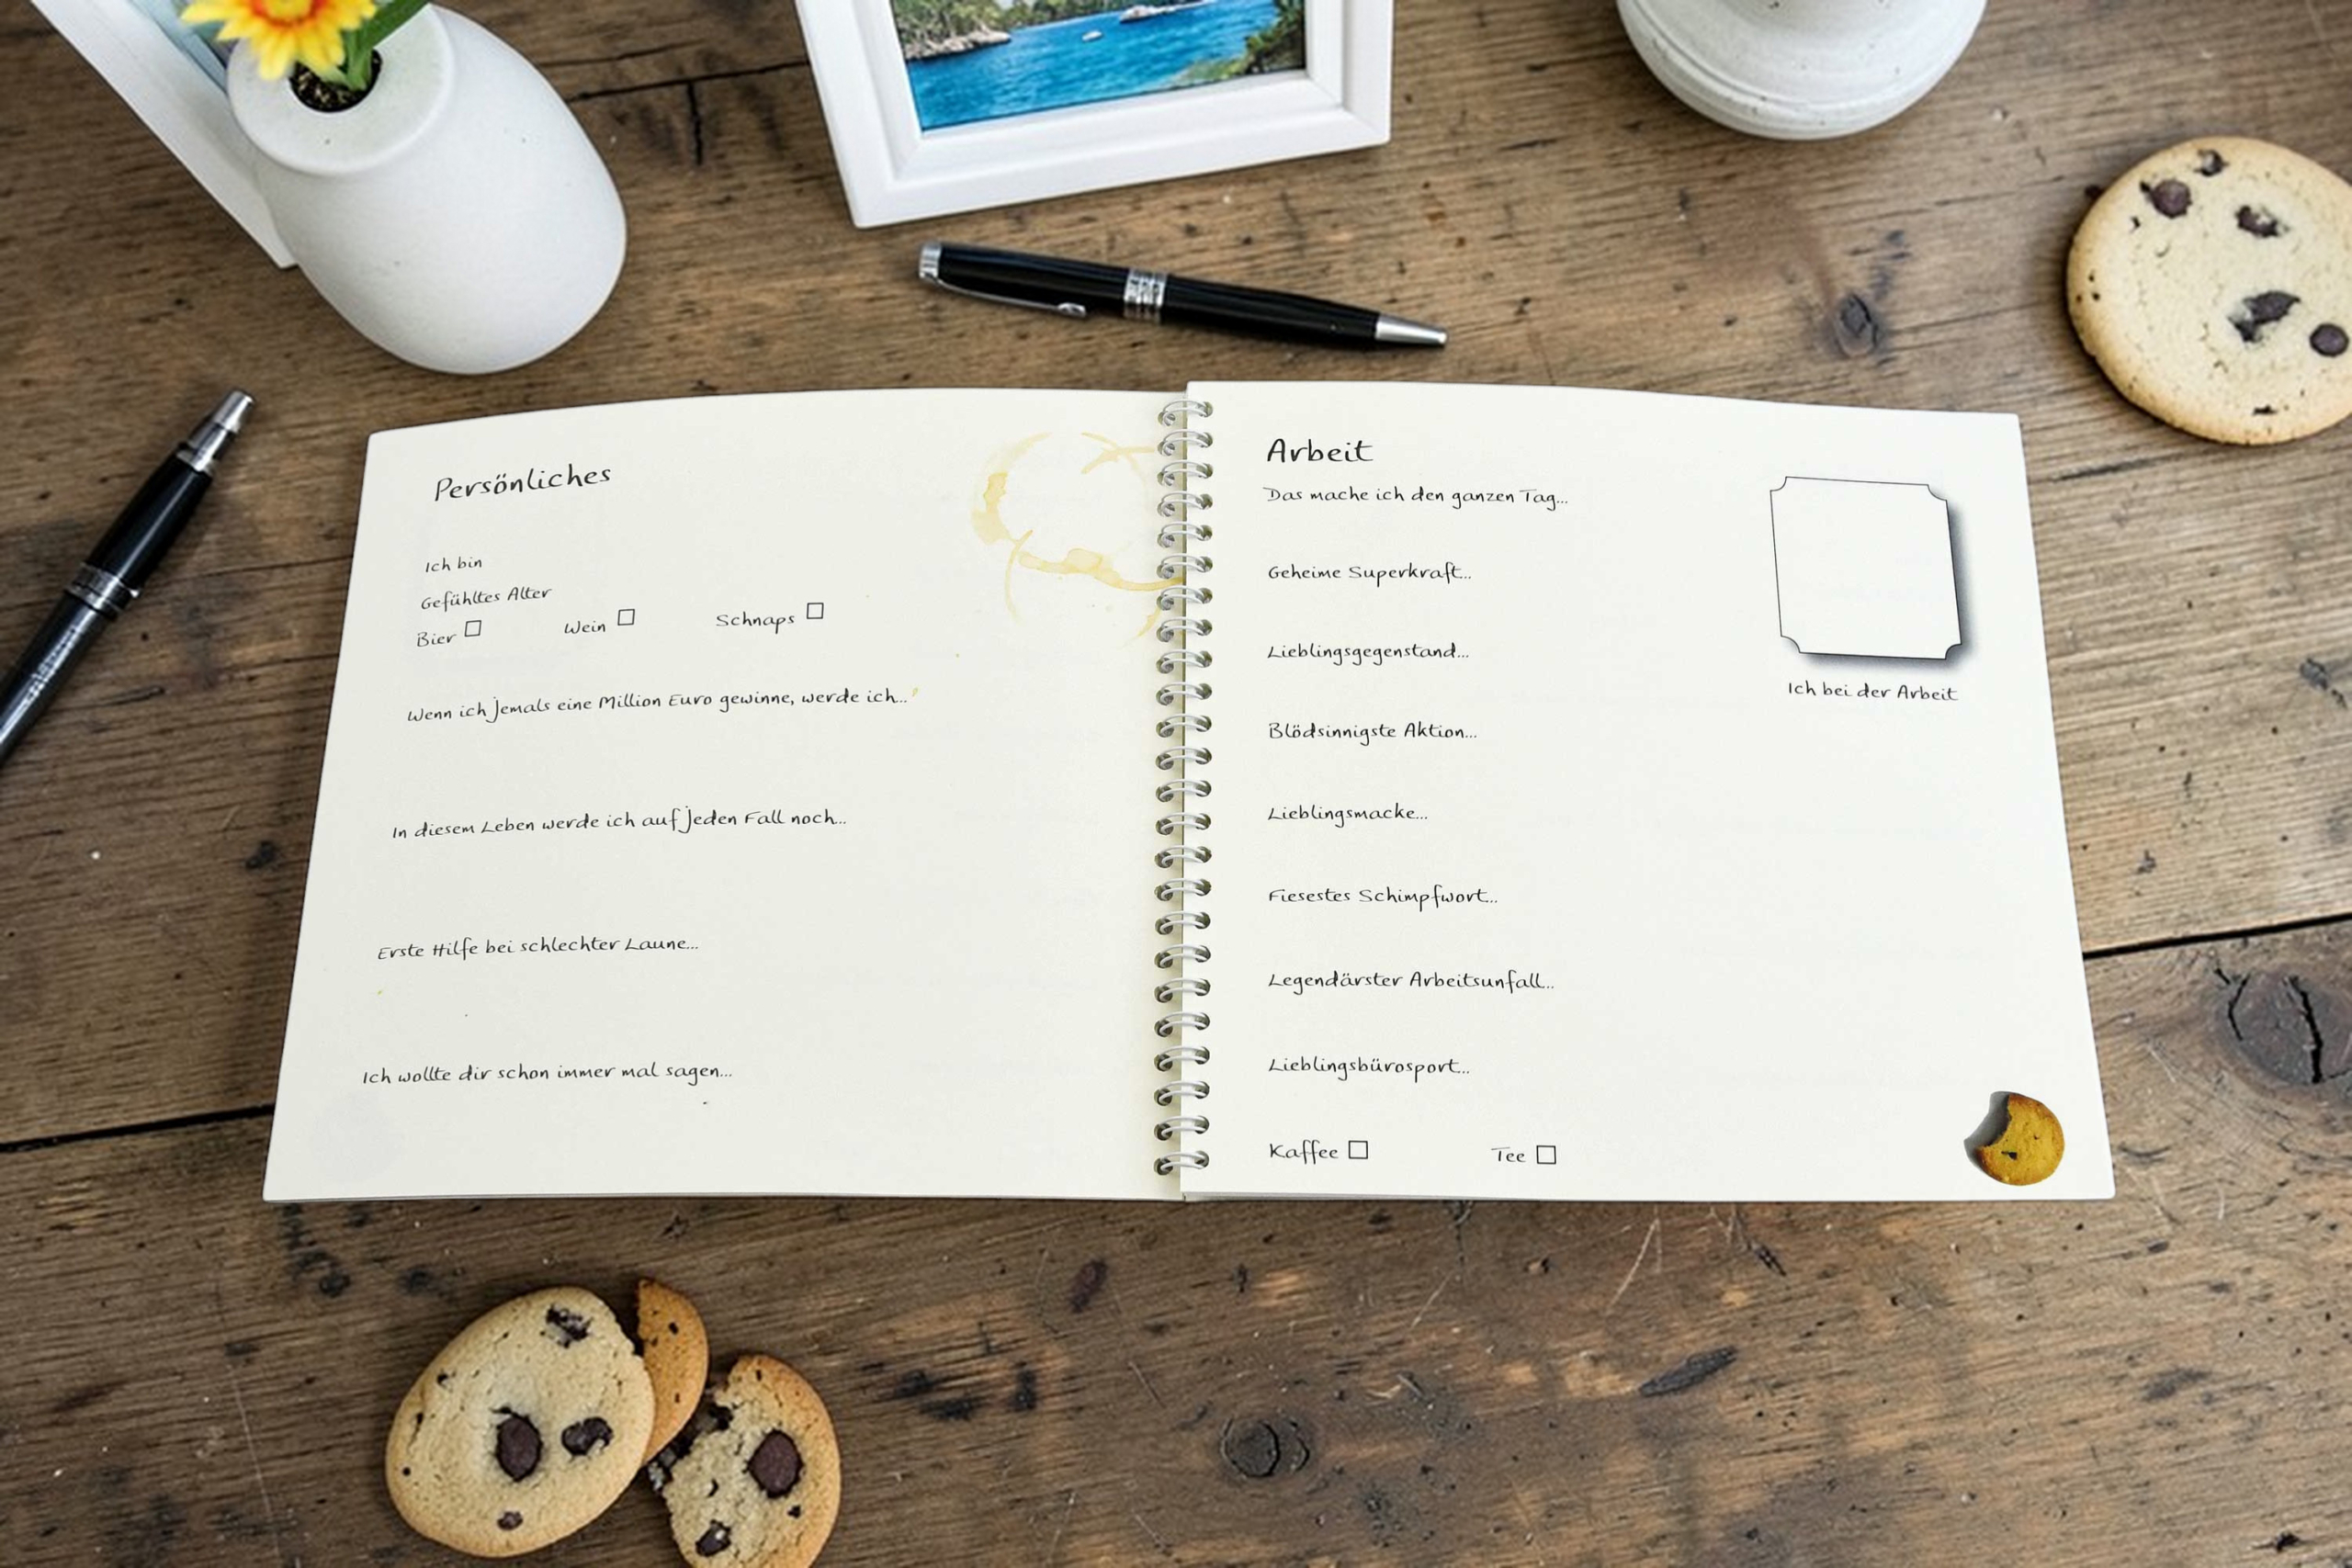 Persönliches
Ich bin
Gefühltes Alter
Bier □ Wein □ Schnaps □
Wenn ich jemals eine Million Euro gewinne, werde ich...
In diesem Leben werde ich auf jeden Fall noch...
Erste Hilfe bei schlechter Laune...
Ich wollte dir schon immer mal sagen...
Arbeit
Das mache ich den ganzen Tag...
Geheime Superkraft...
Lieblingsgegenstand...
Ich bei der Arbeit
Blödsinnigste Aktion...
Lieblingsmacke...
Fiesestes Schimpfwort...
Legendärster Arbeitsunfall...
Lieblingsbürosport...
Kaffee □ Tee □